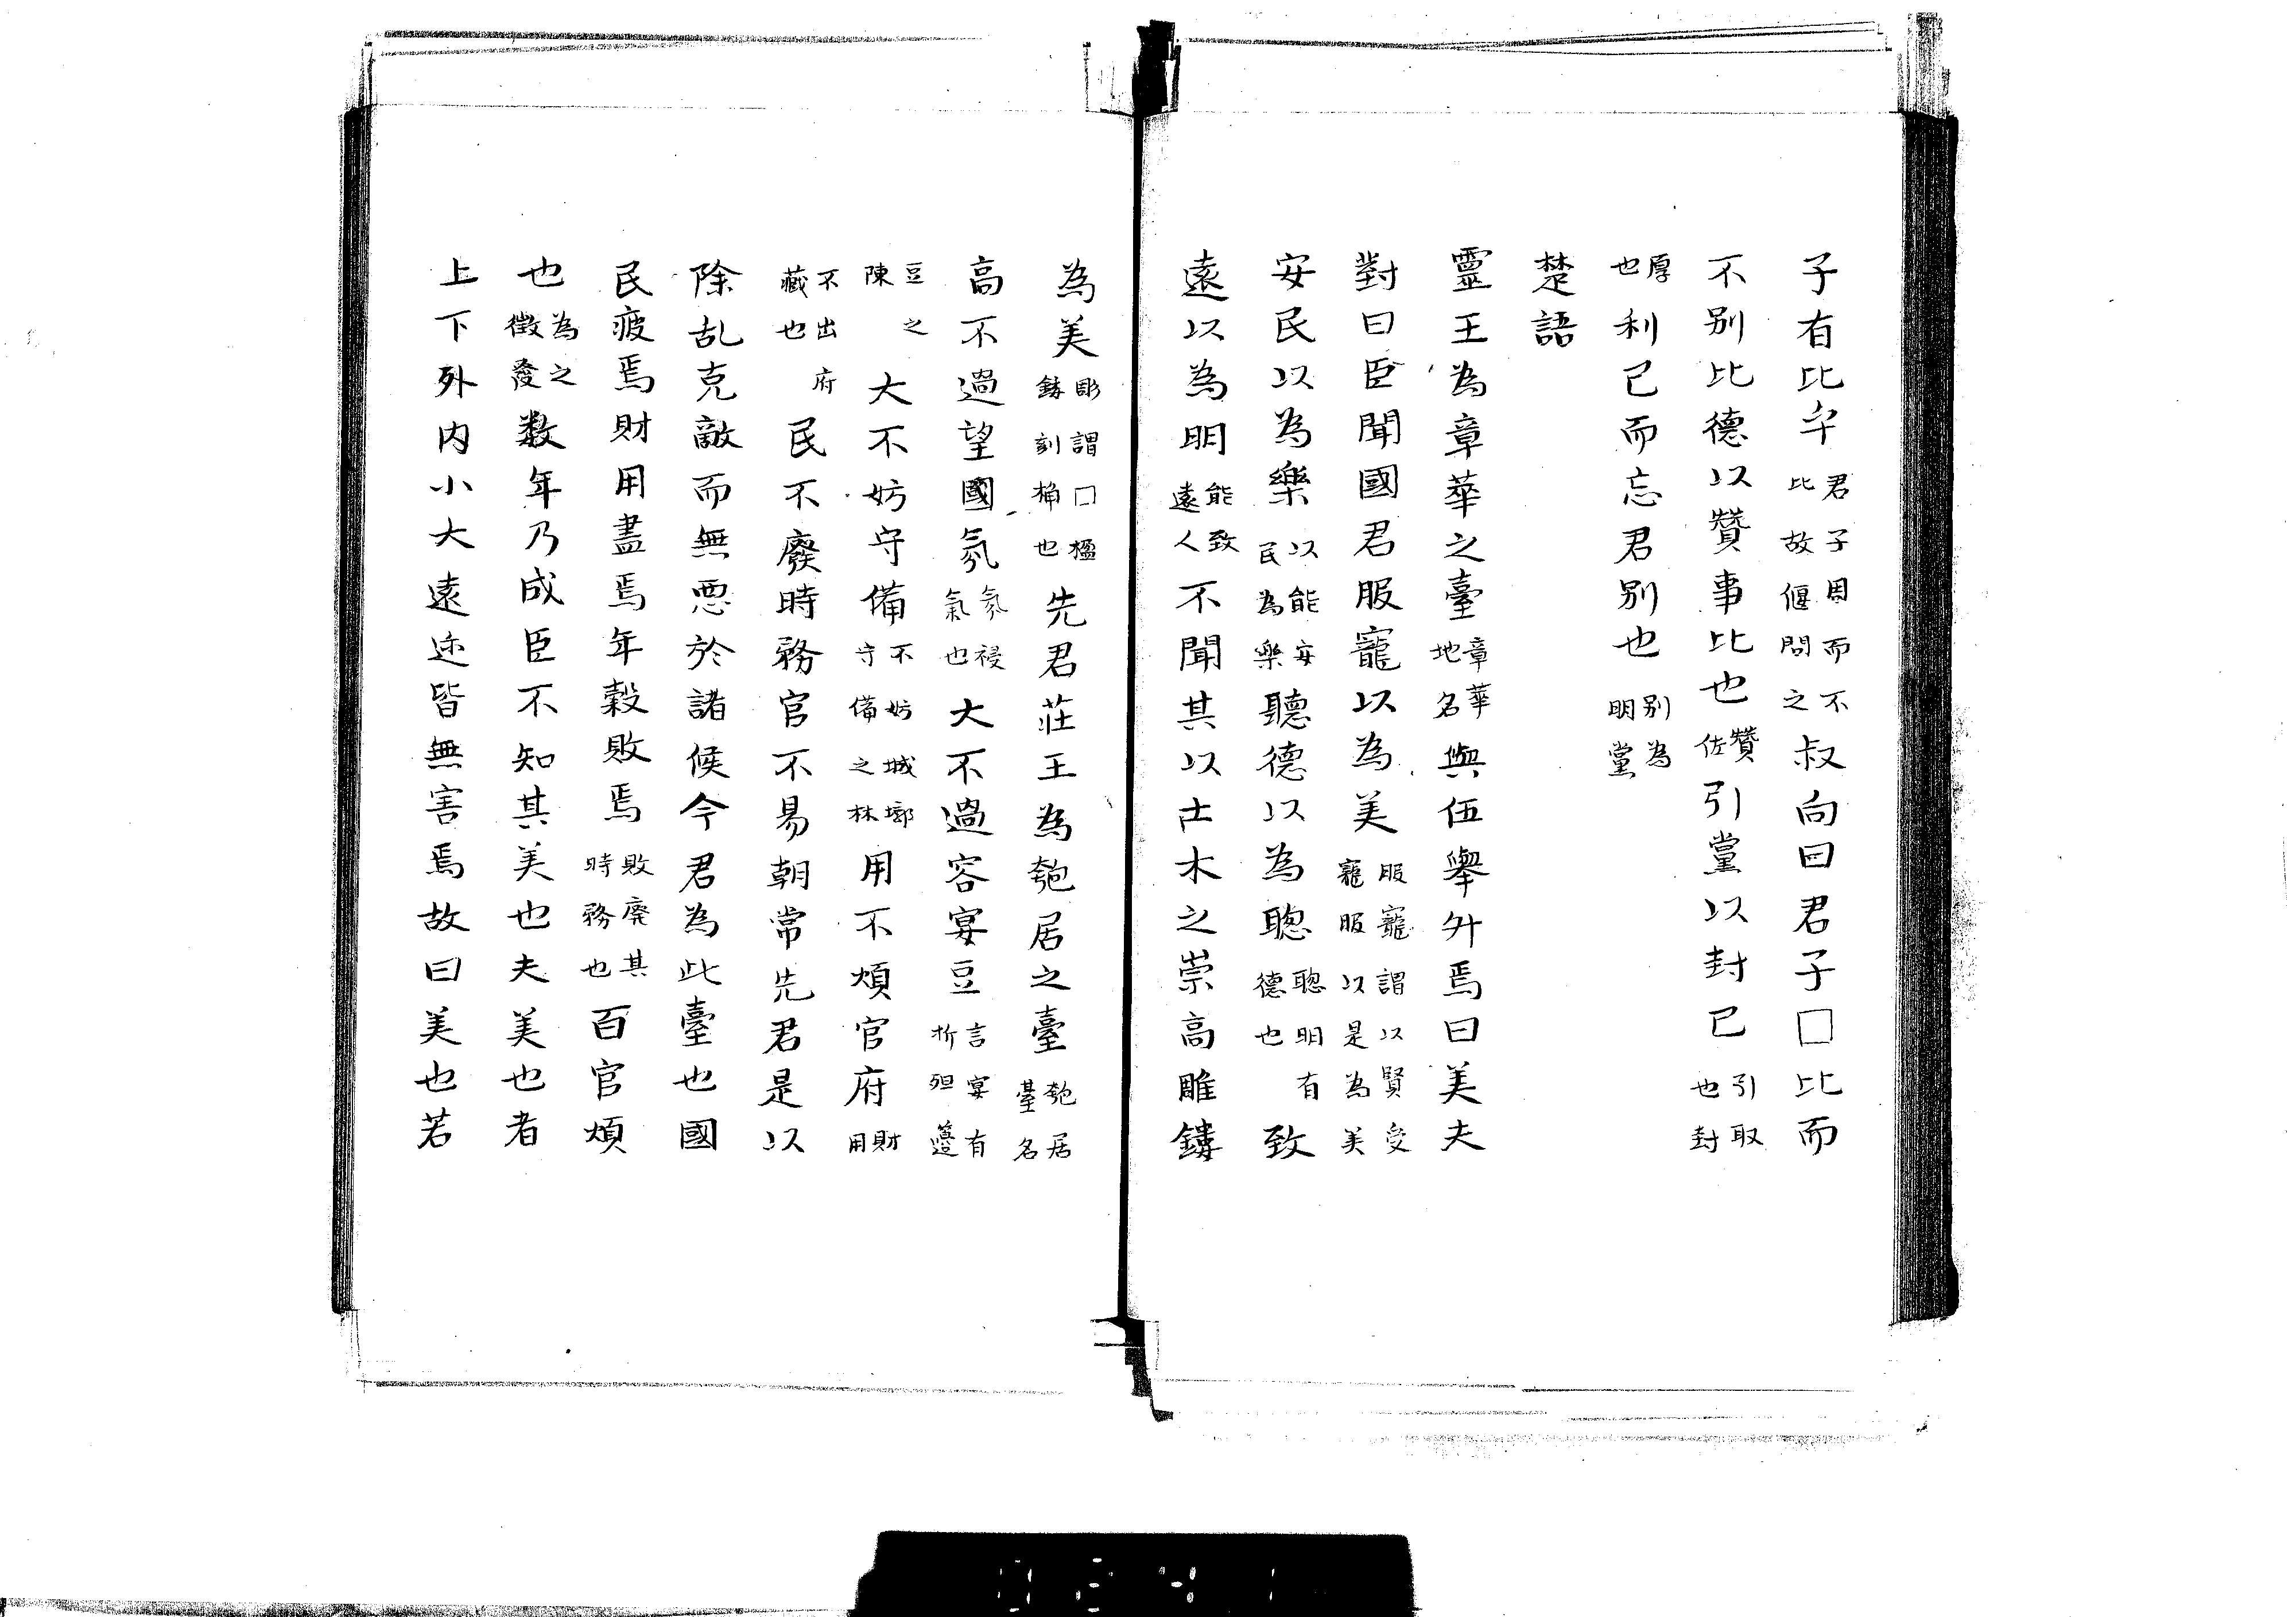 子有比乎君子周而不比故偃問之叔向曰君子□比而
不别比德以贊事比也贊佐引黨以封己引取也封
厚也利己而忘君别也别為明黨
楚語
靈王為章華之臺章華地名與伍舉升焉曰美夫
對曰臣聞國君服寵以為美服寵謂以賢受寵服以是為美
安民以為樂以能安民為樂聽德以為聰聰明有德也致
遠以為明能致遠人不聞其以土木之崇高雕鏤
為美彫謂□楹鏤刻桷也先君莊王為匏居之臺匏居臺名
高不過望國氛氛祲氣也大不過容宴豆言宴有折俎籩
豆之陳大不妨守備不妨城郭守備之林用不煩官府財用
不出府藏也民不廢時務官不易朝常先君是以
除乱克敵而無悪於諸候今君為此臺也國
民疲焉財用盡焉年穀敗焉敗廢其時務也百官煩
也為之徵發数年乃成臣不知其美也夫美也者
上下外内小大遠迩皆無害焉故曰美也若